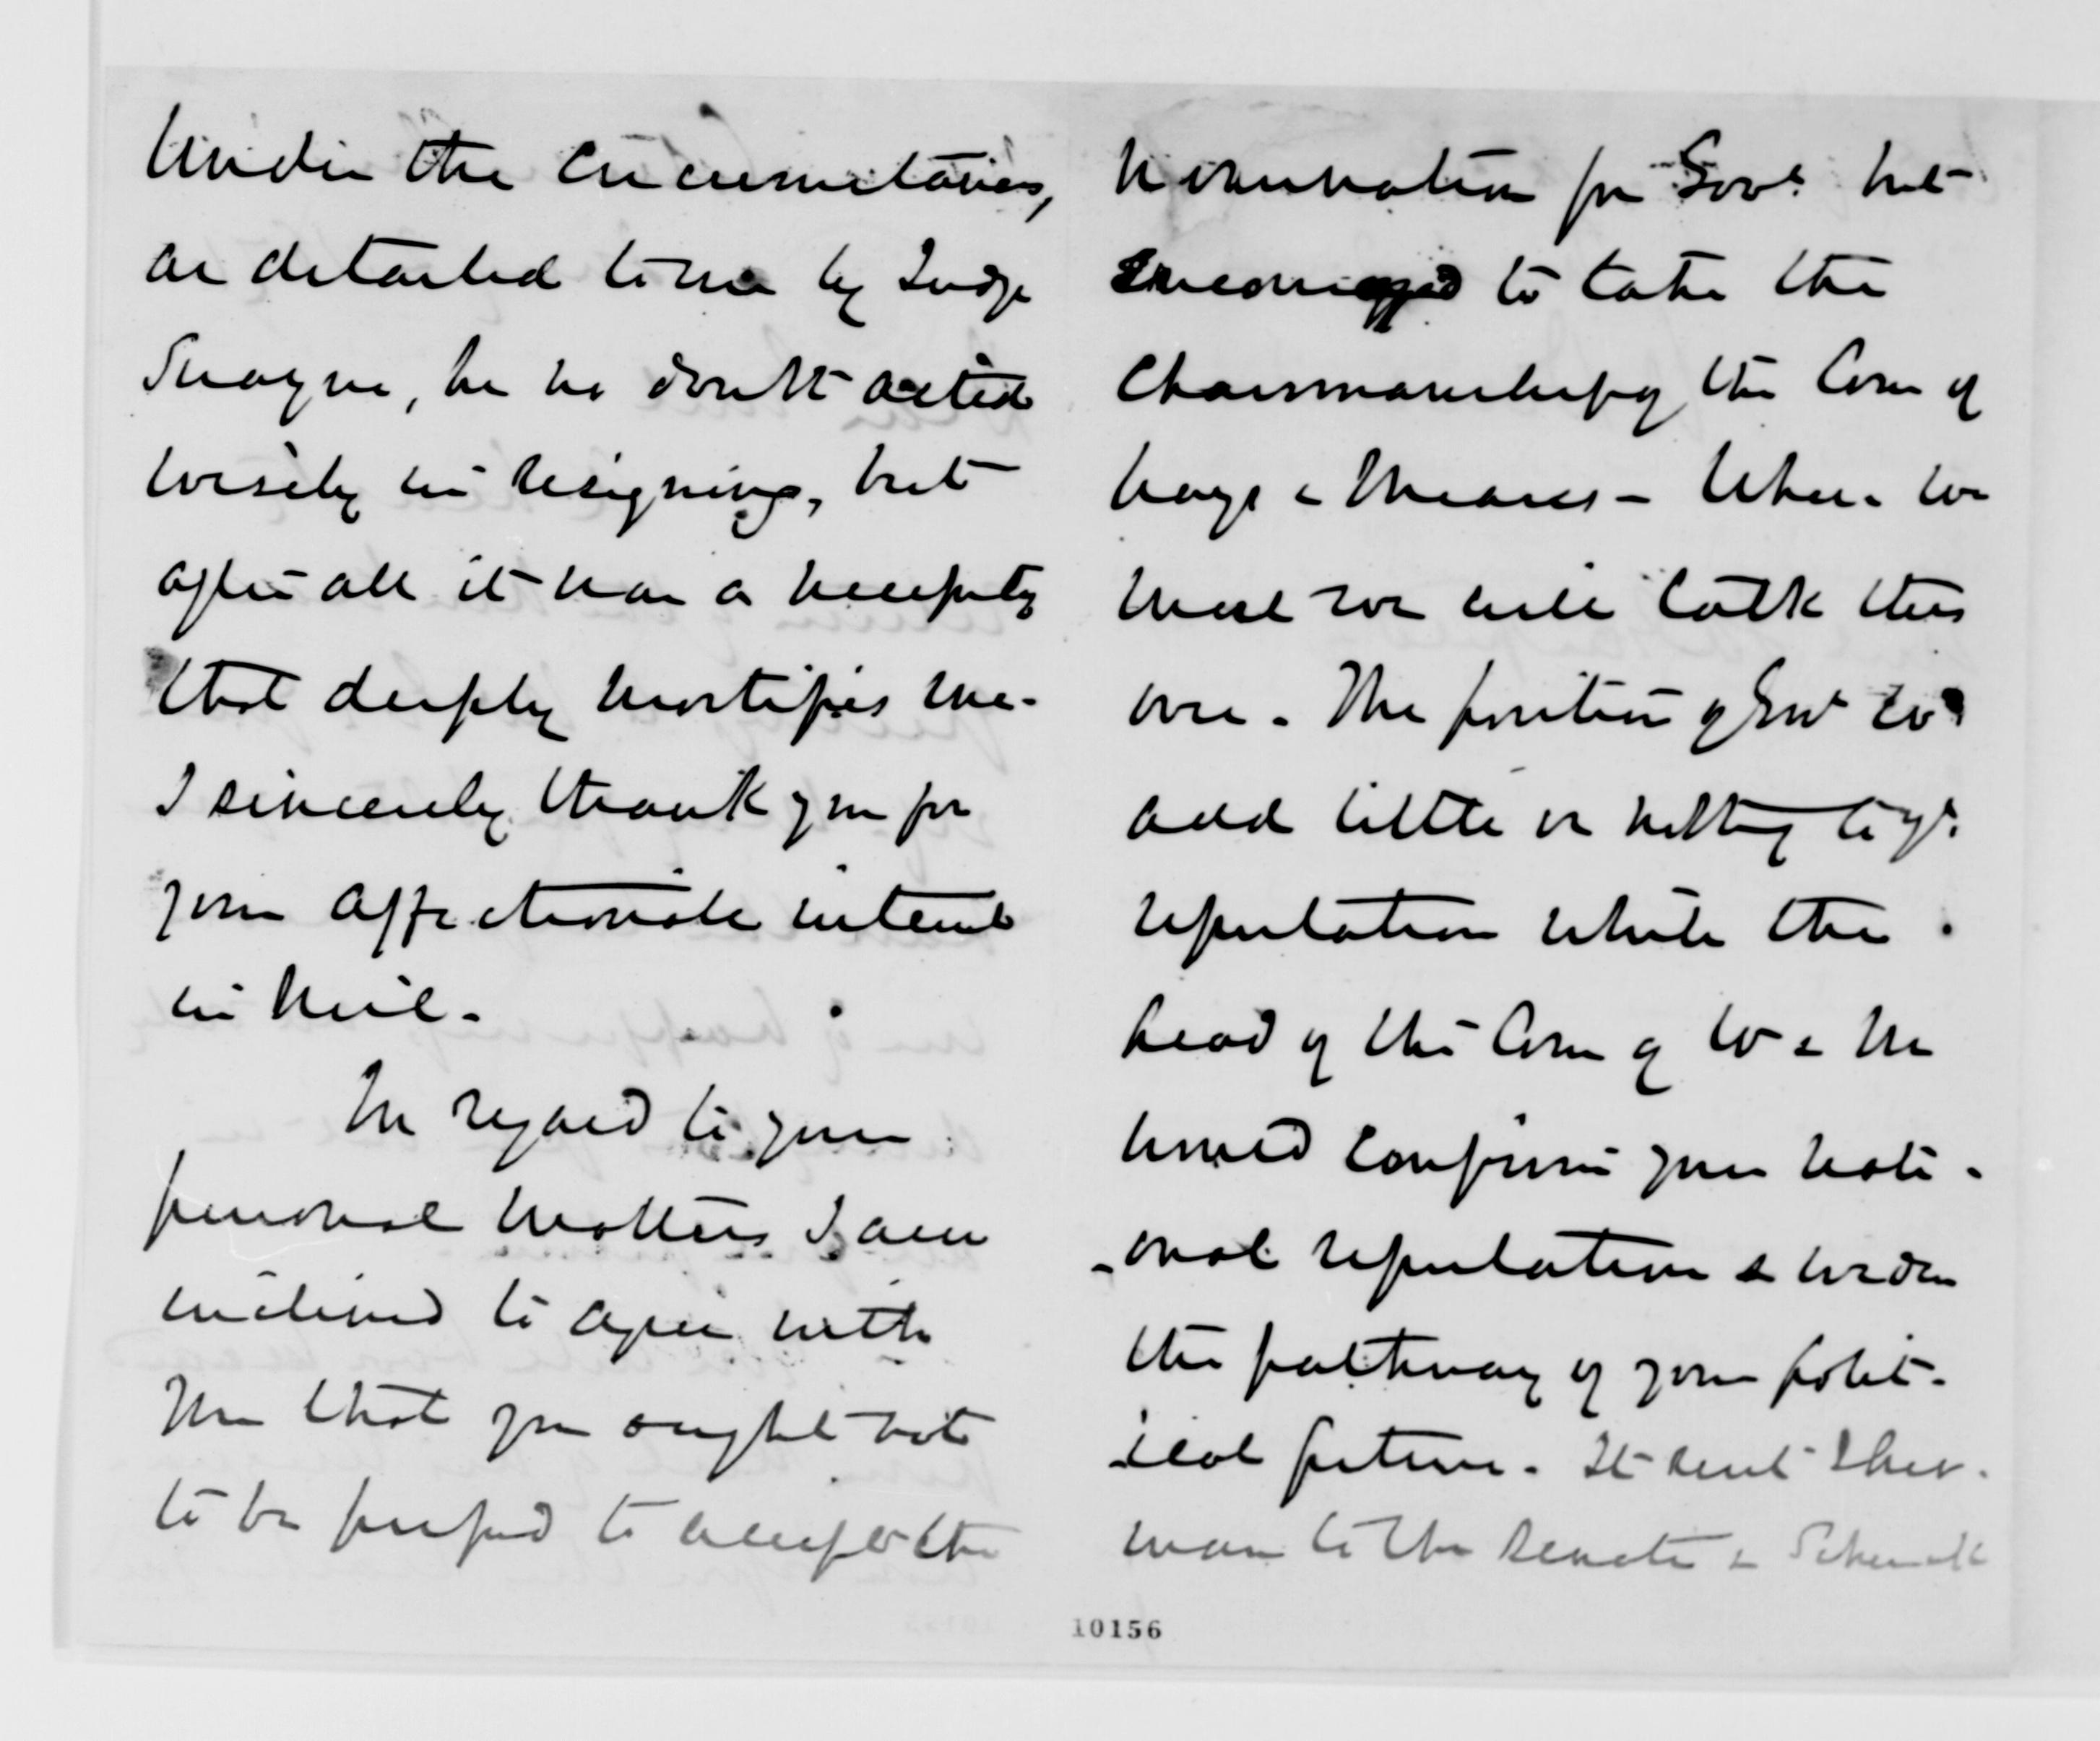 Under the circumstances,
as detailed to me by Judge
Swayne, he no doubt acted
wisely in resigning, but
after all it was a necessity
that deeply mortifies me.
I sincerely thank you for
your affectionate interest
in him.
In regard to your
personal matters I am
inclined to agree with
that you ought not
to be pressed to accept the
nomination for Govr. but
encouraged to take the
Chairmanship of the Com of
Ways & Means - When we
meet we will talk this
over. The position of Govr wd
add little or nothing to yr.
reputation while the
head of the Com of W & M
would confirm your nati-
-onal reputation & widen
the pathway of your polit-
-ical future. It sent Sher-
man to the Senate & Schenck
10156